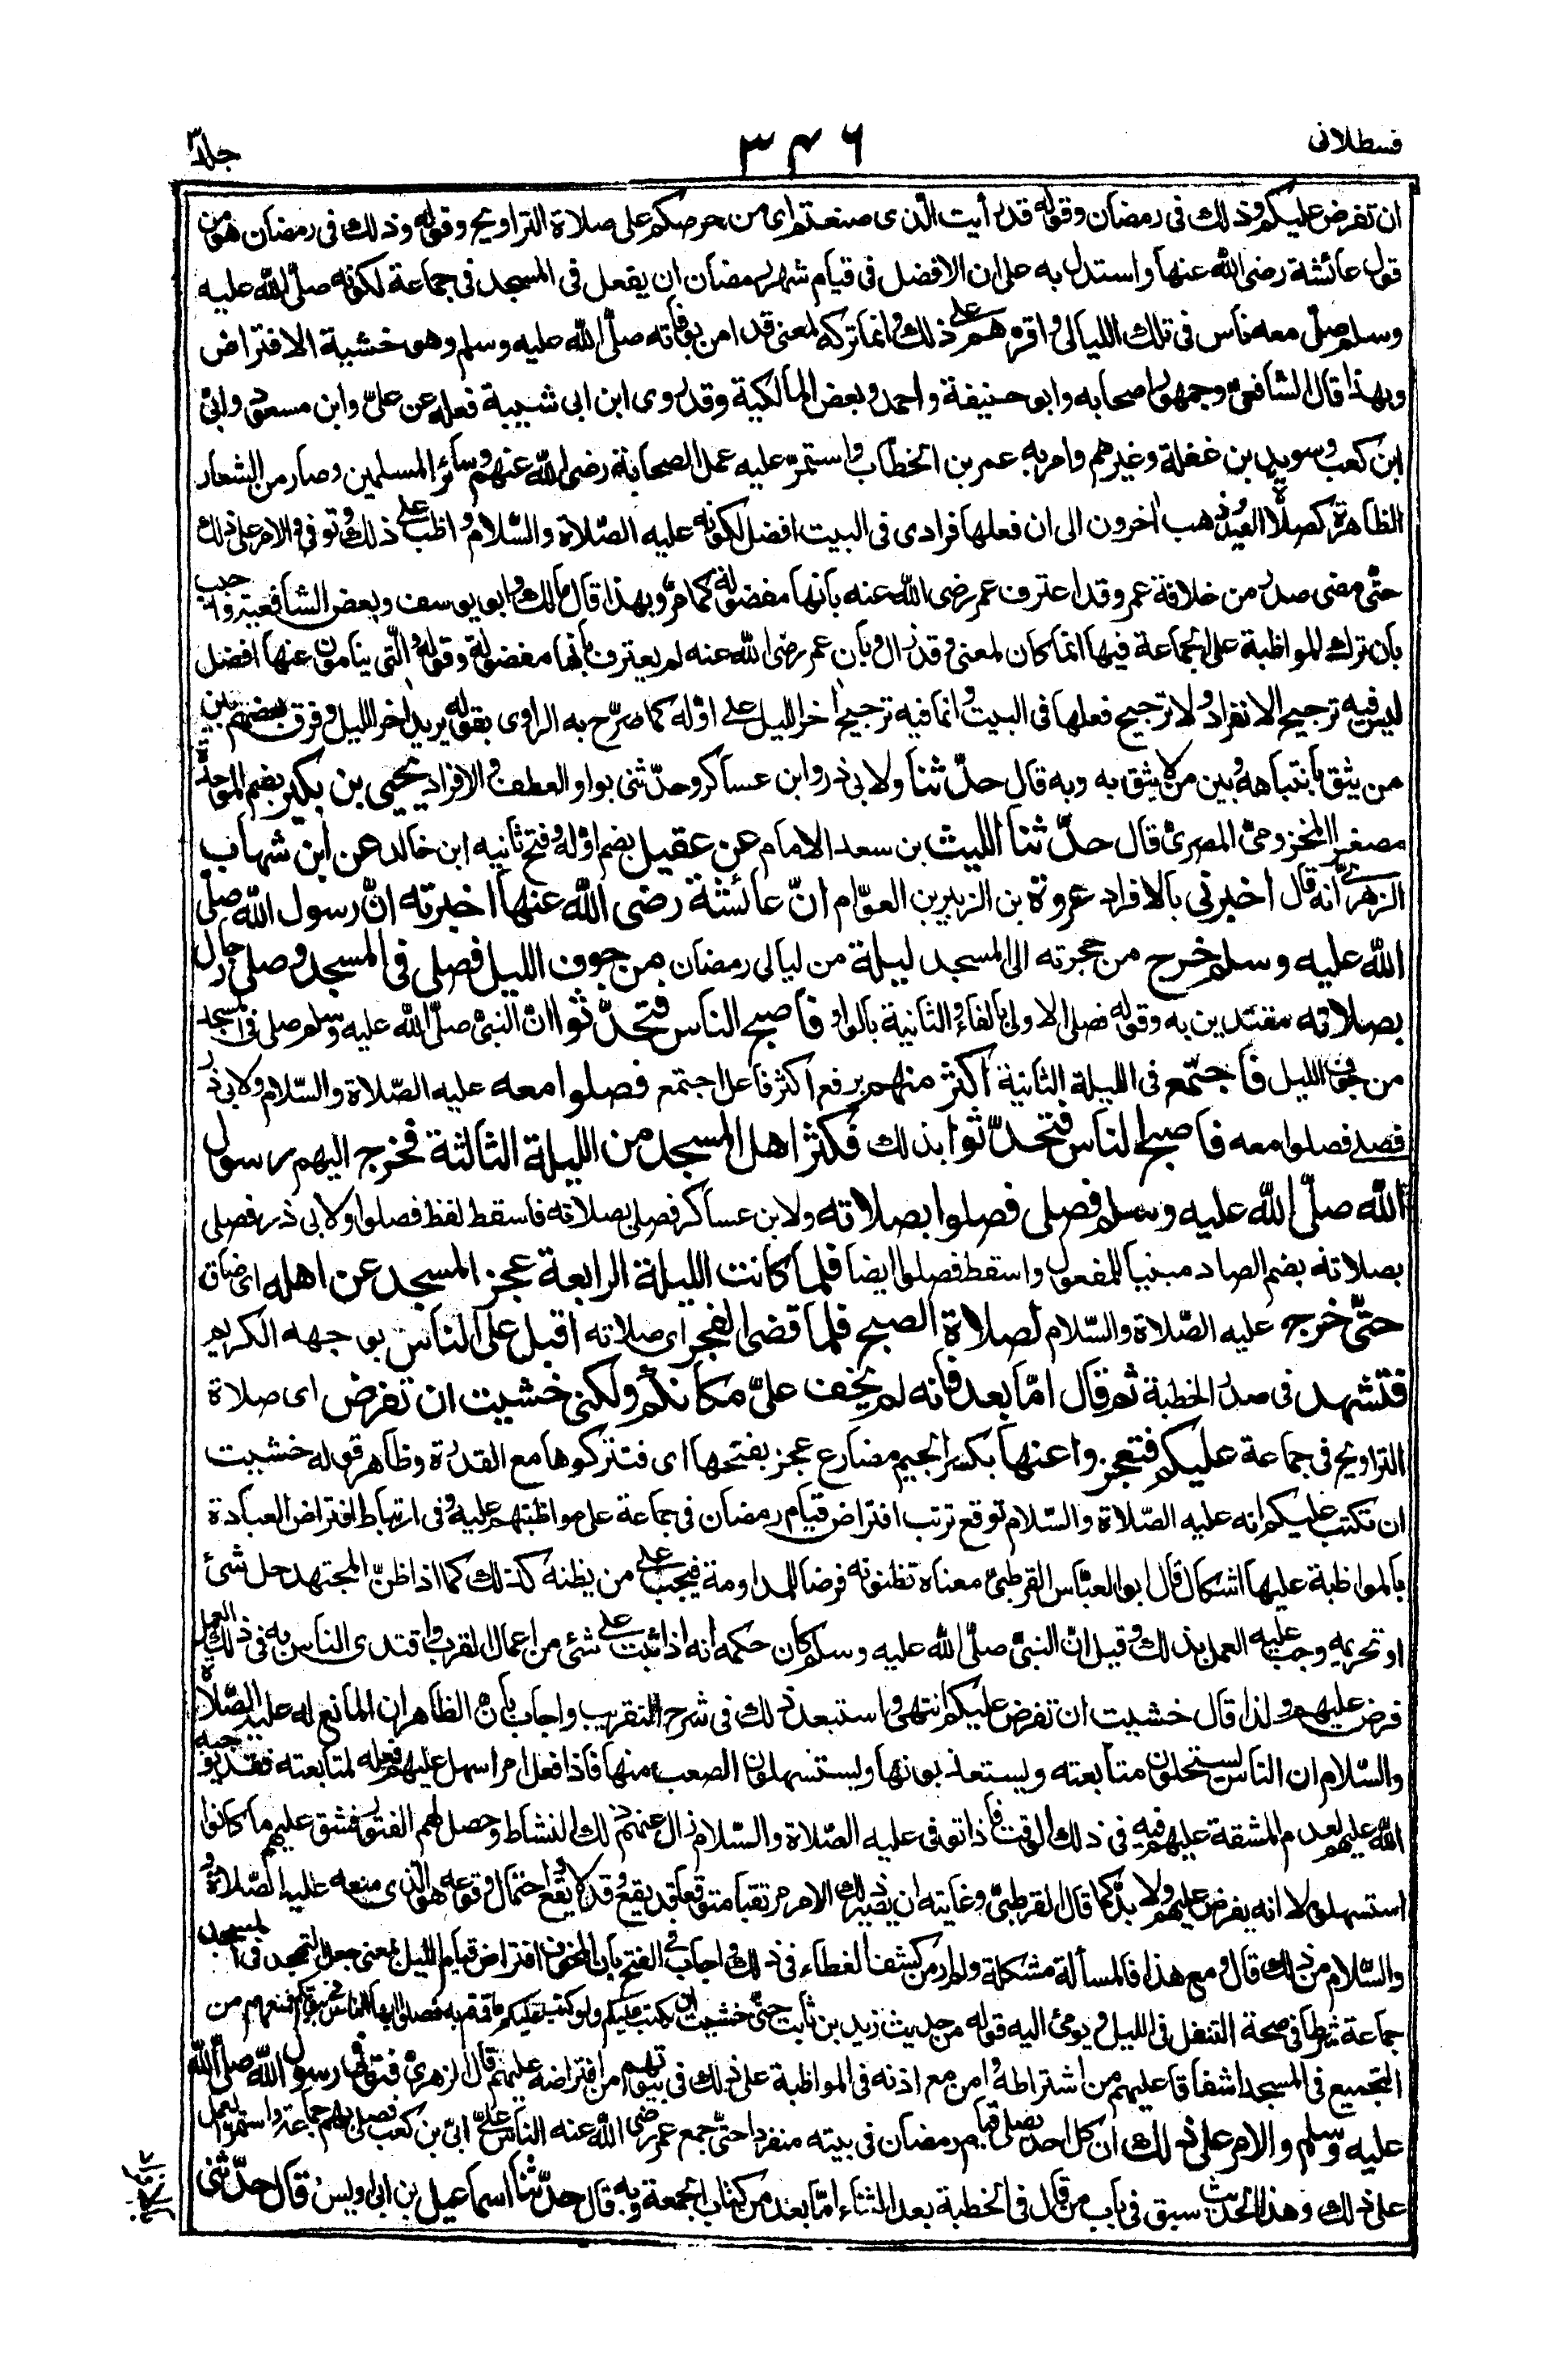 قسطلانی
٣٤٦
جلد ٣
ان تفرض عليكم وذلك فى رمضان وقوله قد رأيت الذى صنعتم اى من حرصكم على صلاة التراويح وقوله وذلك فى رمضان هو من
قول عائشة رضى الله عنها واستدل به على ان الافضل فى قيام شهر رمضان ان يفعل فى المسجد فى جماعة لكونه صلى الله عليه
وسلم صلى معه ناس فى تلك الليالى واقرهم على ذلك وانما تركه لمعنى قد امن بوفاته صلى الله عليه وسلم وهو خشية الافتراض
وبهذا قال الشافعى وجمهور اصحابه وابو حنيفة واحمد وبعض المالكية وقد روى ابن ابى شيبة فعله عن على وابن مسعود وابى
ابن كعب وسويد بن غفلة وغيرهم وامر به عمر بن الخطاب واستمر عليه عمل الصحابة رضى الله عنهم وسائر المسلمين وصار من الشعار
الظاهرة كصلاة العيد وذهب اخرون الى ان فعلها فرادى فى البيت افضل لكونه عليه الصلاة والسلام واظب على ذلك وتوفى والامر على ذلك
حتى مضى صدر من خلافة عمر وقد اعترف عمر رضى الله عنه بانها مفضولة كما مر وبهذا قال مالك وابو يوسف وبعض الشافعية واجيب
بان تركه المواظبة على الجماعة فيها انما كان لمعنى وقد زال وبان عمر رضى الله عنه لم يعترف بانها مفضولة وقوله والتى ينامون عنها افضل
ليس فيه ترجيح الانفراد ولا ترجيح فعلها فى البيت وانما فيه ترجيح اخر الليل على اوله كما صرح به الراوى بقوله يريد اخر الليل وفرق بعضهم بين
من يثق بانتباهه وبين من لا يثق به وبه قال حدثنا ولابى ذر وابن عساكر وحدثنى بواو العطف والافراد يحيى بن بكير بضم الموحدة
مصغر المخزومى المصرى قال حدثنا الليث بن سعد الامام عن عقيل بضم اوله وفتح ثانيه ابن خالد عن ابن شهاب
الزهرى انه قال اخبرنى بالافراد عروة بن الزبير بن العوام ان عائشة رضى الله عنها اخبرته ان رسول الله صلى
الله عليه وسلم خرج من حجرته الى المسجد ليلة من ليالى رمضان من جوف الليل فصلى فى المسجد وصلى رجال
بصلاته مقتدين به وقوله فصلى الاولى بالفاء والثانية بالواو فاصبح الناس فتحدثوا ان النبى صلى الله عليه وسلم صلى فى المسجد
من جوف الليل فاجتمع فى الليلة الثانية اكثر منهم برفع اكثر فاعل اجتمع فصلوا معه عليه الصلاة والسلام ولابى ذر
فصلى فصلوا معه فاصبح الناس فتحدثوا بذلك فكثر اهل المسجد من الليلة الثالثة فخرج اليهم رسول
الله صلى الله عليه وسلم فصلى فصلوا بصلاته ولابن عساكر فصلى بصلاته فاسقط لفظ فصلوا ولابى ذر فصلى
بصلاته بضم الصاد مبنيا للمفعول واسقط فصلوا ايضا فلما كانت الليلة الرابعة عجز المسجد عن اهله اى ضاق
حتى خرج عليه الصلاة والسلام لصلاة الصبح فلما قضى الفجر اى صلاته اقبل على الناس بوجهه الكريم
فتشهد فى صدر الخطبة ثم قال اما بعد فانه لم يخف على مكانكم ولكنى خشيت ان تفرض اى صلاة
التراويح فى جماعة عليكم فتعجزوا عنها بكسر الجيم مضارع عجز بفتحها اى فتتركوها مع القدرة وظاهر قوله خشيت
ان تكتب عليكم انه عليه الصلاة والسلام توقع ترتب افتراض قيام رمضان فى جماعة على مواظبتهم عليه وفى ارتباط افتراض العبادة
بالمواظبة عليها اشكال قال ابو العباس القرطبى معناه تظنونه فرضا للمداومة فيجب على من يظنه كذلك كما اذا ظن المجتهد حل شئ
او تحريمه وجب عليه العمل بذلك وقيل ان النبى صلى الله عليه وسلم كان حكمه انه اذا ثبت على شئ من اعمال القرب واقتدى الناس به فى ذلك العمل
فرض عليهم ولذا قال خشيت ان تفرض عليكم انتهى واستبعد ذلك فى شرح التقريب واجاب بان الظاهر ان المانع له عليه الصلاة
والسلام ان الناس يستحلون متابعته ويستعذبونها ويستسهلون الصعب منها فاذا فعل امرا سهل عليهم فعله لمتابعته فقد يوجبه
الله عليهم لعدم المشقة عليهم فيه فى ذلك الوقت فاذا توفى عليه الصلاة والسلام زال عنهم ذلك النشاط وحصل لهم الفتور فشق عليهم ما كانوا
استسهلوه لا انه يفرض عليهم ولا بد كما قال القرطبى وغايته ان يصير ذلك الامر مرتقبا متوقعا قد يقع وقد لا يقع واحتمال وقوعه هو الذى منعه عليه الصلاة و
والسلام من ذلك قال ومع هذا فالمسألة مشكلة ولم ار من كشف الغطاء فى ذلك واجاب فى الفتح بان المخوف افتراض قيام الليل بمعنى جعل التهجد فى المسجد
جماعة شرطا فى صحة التنفل فى الليل ويومئ اليه قوله من حديث زيد بن ثابت حتى خشيت ان يكتب عليكم ولو كتب عليكم ما قمتم به فصلوا ايها الناس فى بيوتكم فمنعهم من
التجميع فى المسجد اشفاقا عليهم من اشتراطه وامن مع اذنه فى المواظبة على ذلك فى بيوتهم من افتراضه عليهم قال الزهرى فتوفى رسول الله صلى الله
عليه وسلم والامر على ذلك ان كل احد يصلى قيام رمضان فى بيته منفردا حتى جمع عمر رضى الله عنه الناس على ابى بن كعب فصلى بهم جماعة واستمر العمل
على ذلك وهذا الحديث سبق فى باب من قال فى الخطبة بعد الثناء اما بعد من كتاب الجمعة وبه قال حدثنا اسماعيل بن ابى اويس قال حدثنى